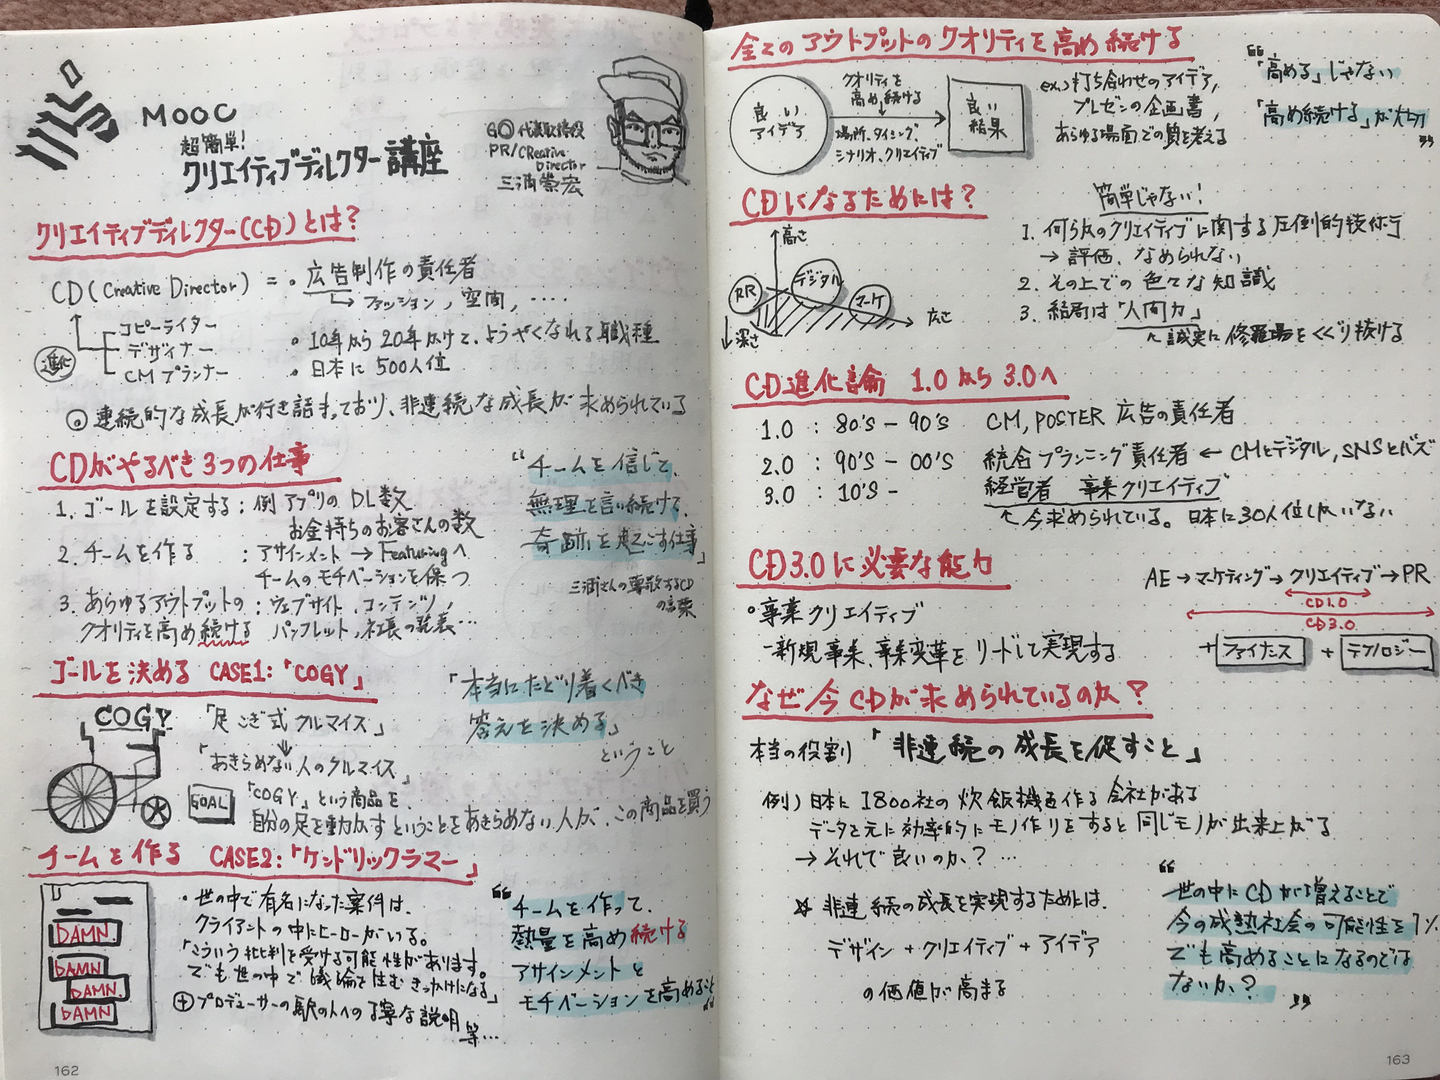 MOOC
超簡単!
クリエイティブディレクター講座
GO 代表取締役
PR/Creative
Director
三浦崇宏
クリエイティブディレクター(CD)とは?
CD(Creative Director) = ・広告制作の責任者
→ファッション, 空間, ‥‥
コピーライター
デザイナー
CMプランナー
進化
・10年から20年かけて、ようやくなれる職種
・日本に500人位
◎連続的な成長が行き詰まっており、非連続な成長が求められている
CDがやるべき3つの仕事
1. ゴールを設定する : 例 アプリのDL数
お金持ちのお客さんの数
2. チームを作る : アサインメント→Featuringへ
チームのモチベーションを保つ
3. あらゆるアウトプットの : ウェブサイト、コンテンツ、
クオリティを高め続ける パンフレット、社長の発表…
“チームを信じて、
無理を言い続ける、
奇跡を起こす仕事」
三浦さんの尊敬するCD
の言葉
ゴールを決める CASE1:「COGY」
COGY
「足こぎ式クルマイス」
↓
「あきらめない人のクルマイス」
GOAL
「COGY」という商品を、
自分の足を動かすということをあきらめない人が、この商品を買う
「本当にたどり着くべき
答えを決める」
ということ
チームを作る CASE2:「ケンドリックラマー」
DAMN.
DAMN.
DAMN.
DAMN.
・世の中で有名になった案件は、
クライアントの中にヒーローがいる。
「こういう批判を受ける可能性があります。
でも世の中で議論を生むきっかけになる」
⊕プロデューサーの駅の人への丁寧な説明
等…
“チームを作って、
熱量を高め続ける
アサインメントと
モチベーションを高めること”
162
全てのアウトプットのクオリティを高め続ける
良い
アイデア
クオリティを
高め続ける
場所、タイミング、
シナリオ、クリエイティブ
良い
結果
ex.) 打ち合わせのアイデア,
プレゼンの企画書,
あらゆる場面での質を考える
“「高める」じゃない
「高め続ける」が大切”
CDになるためには?
高さ
PR
デジタル
マーケ
広さ
深さ
簡単じゃない!
1. 何らかのクリエイティブに関する圧倒的技術
→ 評価、なめられない
2. その上での色々な知識
3. 結局は「人間力」
↖ 誠実に修羅場をくぐり抜ける
CD進化論 1.0から3.0へ
1.0 : 80'S – 90'S CM, POSTER 広告の責任者
2.0 : 90'S – 00'S 統合プランニング責任者 ← CMとデジタル, SNSとバズ
3.0 : 10'S – 経営者 事業クリエイティブ
↖今求められている。日本に30人位しかいない
CD3.0に必要な能力
○事業クリエイティブ
-新規事業、事業変革をリードして実現する
AE→マーケティング→クリエイティブ→PR
CD1.0
CD3.0
+ファイナンス +テクノロジー
なぜ今CDが求められているのか?
本当の役割 「非連続の成長を促すこと」
例) 日本に1800社の炊飯機を作る会社がある
データを元に効率的にモノ作りをすると同じモノが出来上がる
→ それで良いのか? …
☆ 非連続の成長を実現するためには、
デザイン + クリエイティブ + アイデア
の価値が高まる
“世の中にCDが増えることで
今の成熟社会の可能性を1%
でも高めることになるのでは
ないか?”
163